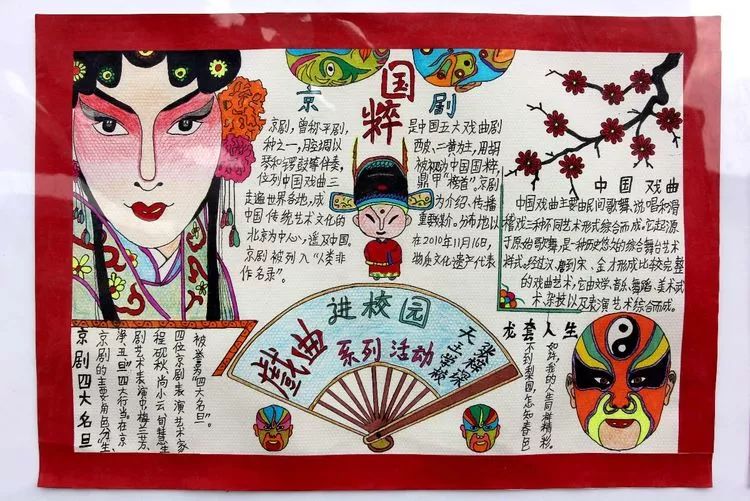 国粹
京剧
京剧,曾称平剧,是中国五大戏曲剧
种之一,用腔调以西皮、二黄为主,用胡
琴和锣鼓等伴奏,被视为中国国粹
位列中国戏曲三鼎甲“榜首”京剧
走遍世界各地,成为介绍、传播
中国传统艺术文化的分布地以
北京为中心,遍及中国,在2010年11月16日,
京剧被列入“人类非物质文化遗产代表
作名录”。
中国戏曲
中国戏曲主要由民间歌舞、说唱和滑
稽戏三种不同艺术形式综合而成。它起源
于原始歌舞,是一种历史悠久的综合舞台艺术
样式。经过汉、唐到宋、金才形成比较完整
的戏曲艺术,它由文学、音乐、舞蹈、美术、武
术、杂技以及表演艺术综合而成。
进校园
戲曲
系列活动
天王学校
张梓琛
京剧四大名旦
京剧的主要角色分“生、
净、丑、旦”四大行当。在京
剧艺术表演中,梅兰芳、
程砚秋、尚小云、荀慧生
四位京剧表演艺术家
被誉为“四大名旦”。
龙套人生
不到梨园,怎知春色
如许,我的人生同样精彩。